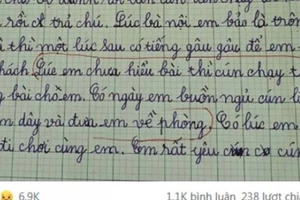 rồi cx trả chú. Lúc bà nội em bảo là trôn
ì thì một lúc sau có tiếng gâu gâu để em
hách. Lúc em chưa hiểu bài thì cún chạy t
bài chò em. Có ngày em buồn ngủ cún l
m dậy và đưa em về phòng. Có lúc em
đi chơi cùng em. Em rất yêu cún
6.9K 1.1K bình luận 238 lượt chi